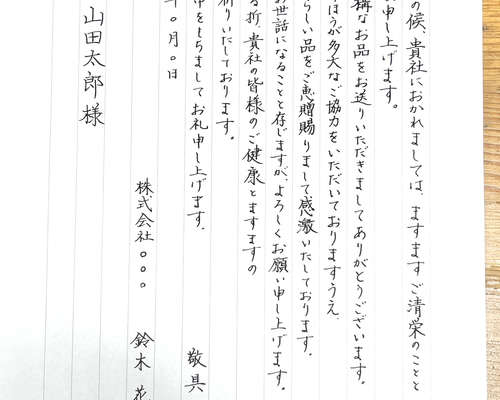 の候、貴社におかれましては、ますますご清栄のことと
お申し上げます。
構なお品をお送りいただきましてありがとうございます。
ほうが多大なご協力をいただいておりますうえ、
らしい品をご恵贈賜りまして感激いたしております。
お世話になることと存じますが、よろしくお願い申し上げます。
る折、貴社の皆様のご健康とますますの
祈りいたしております。
中をもちましてお礼申し上げます。
敬具
年〇月〇日
株式会社〇〇〇 鈴木 花
山田太郎様